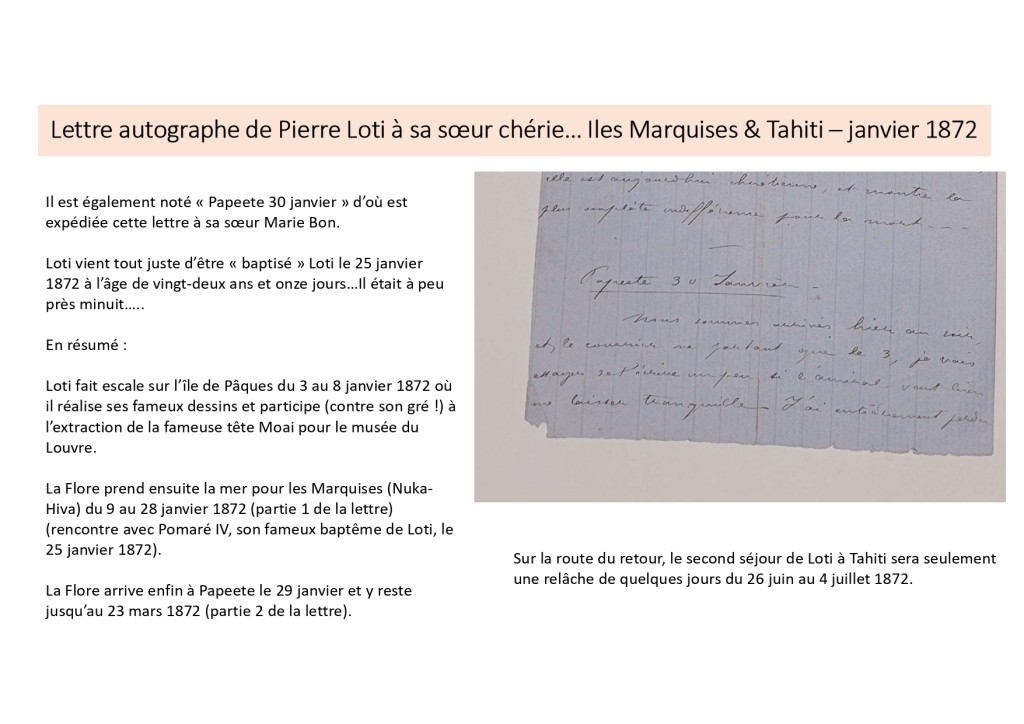 Lettre autographe de Pierre Loti à sa sœur chérie… Iles Marquises & Tahiti – janvier 1872
Il est également noté « Papeete 30 janvier » d’où est
expédiée cette lettre à sa sœur Marie Bon.
Loti vient tout juste d’être « baptisé » Loti le 25 janvier
1872 à l’âge de vingt-deux ans et onze jours…Il était à peu
près minuit…..
En résumé :
Loti fait escale sur l’île de Pâques du 3 au 8 janvier 1872 où
il réalise ses fameux dessins et participe (contre son gré !) à
l’extraction de la fameuse tête Moai pour le musée du
Louvre.
La Flore prend ensuite la mer pour les Marquises (Nuka-
Hiva) du 9 au 28 janvier 1872 (partie 1 de la lettre)
(rencontre avec Pomaré IV, son fameux baptême de Loti, le
25 janvier 1872).
La Flore arrive enfin à Papeete le 29 janvier et y reste
jusqu’au 23 mars 1872 (partie 2 de la lettre).
elle est aujourd'hui chrétienne, et montre la
plus complète indifférence pour la mort
Papeete 30 Janvier
Nous sommes arrivés hier au soir,
et, le courrier ne partant que le 3, je vais
essayer de t'écrire un peu si l'amiral veut bien
me laisser tranquille – J'ai entièrement perdu
Sur la route du retour, le second séjour de Loti à Tahiti sera seulement
une relâche de quelques jours du 26 juin au 4 juillet 1872.